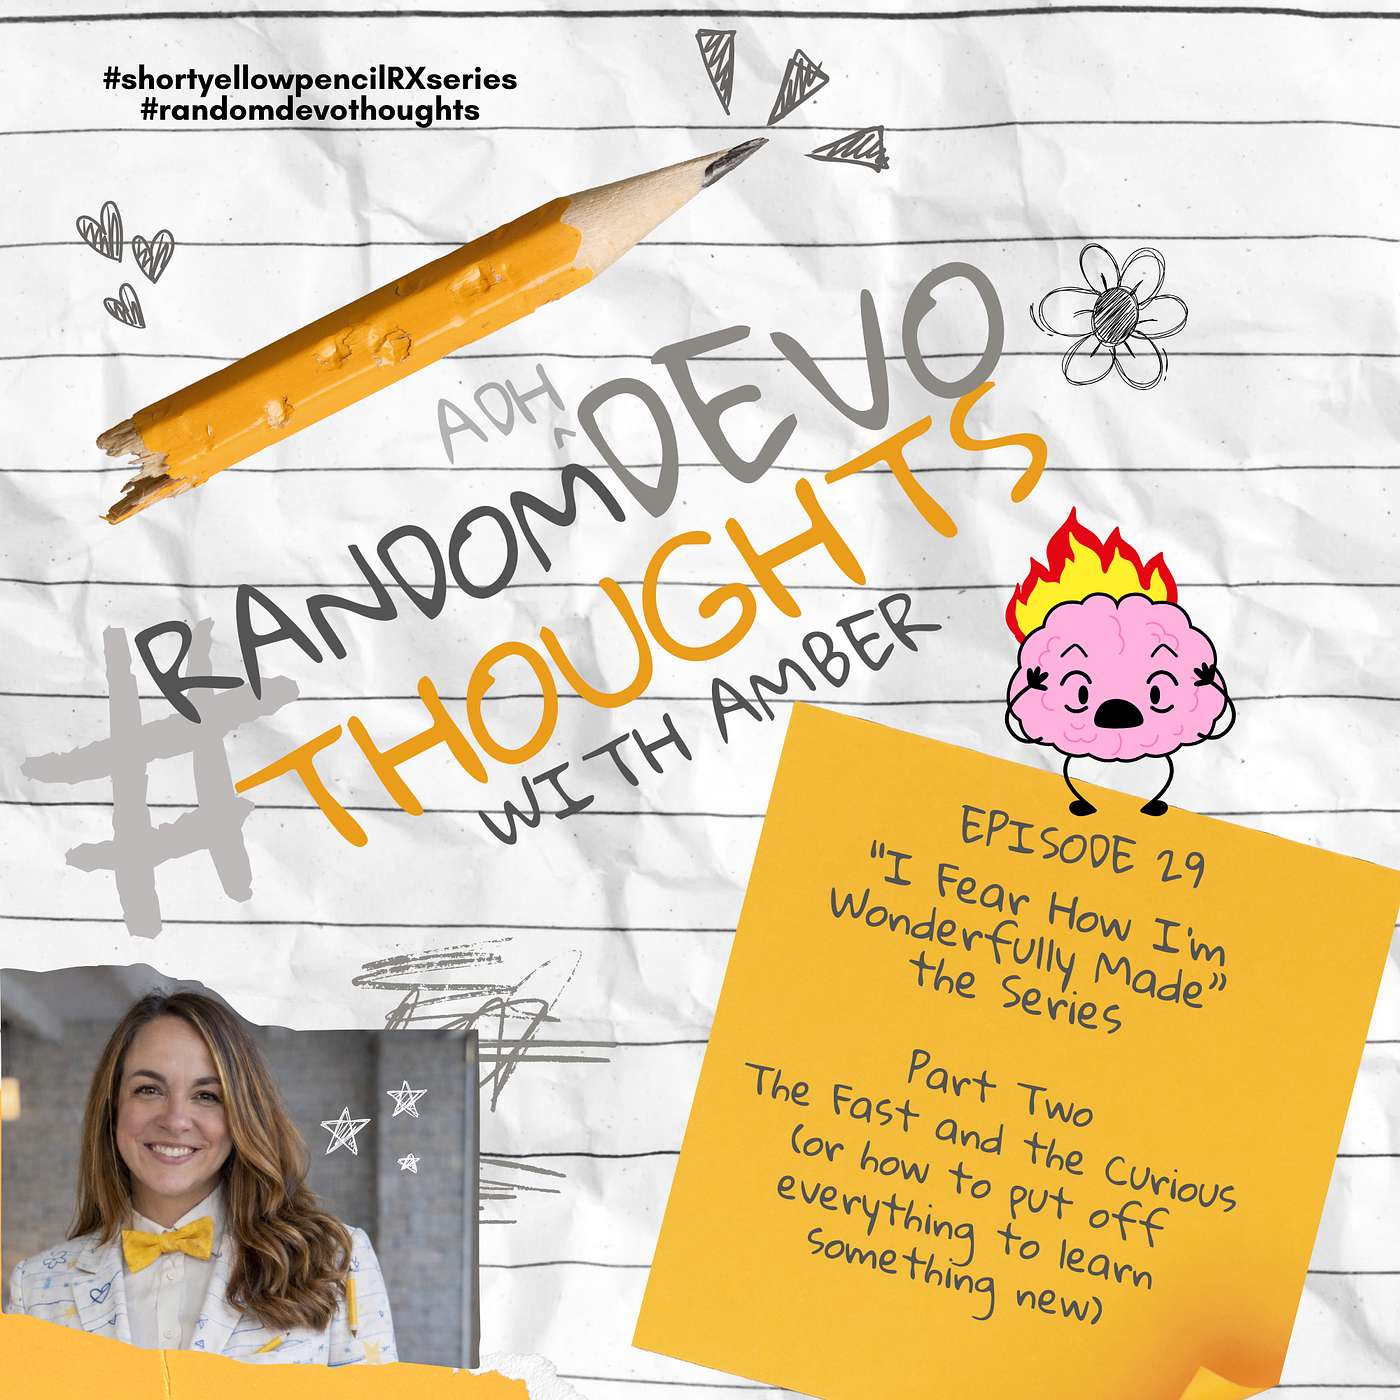 #shortyellowpencilRXseries
#randomdevothoughts
ADH
^
#RANDOMDEVO
THOUGHTS
WITH AMBER
EPISODE 29
"I Fear How I'm
Wonderfully Made"
the Series
Part Two
The Fast and the Curious
(or how to put off
everything to learn
something new)